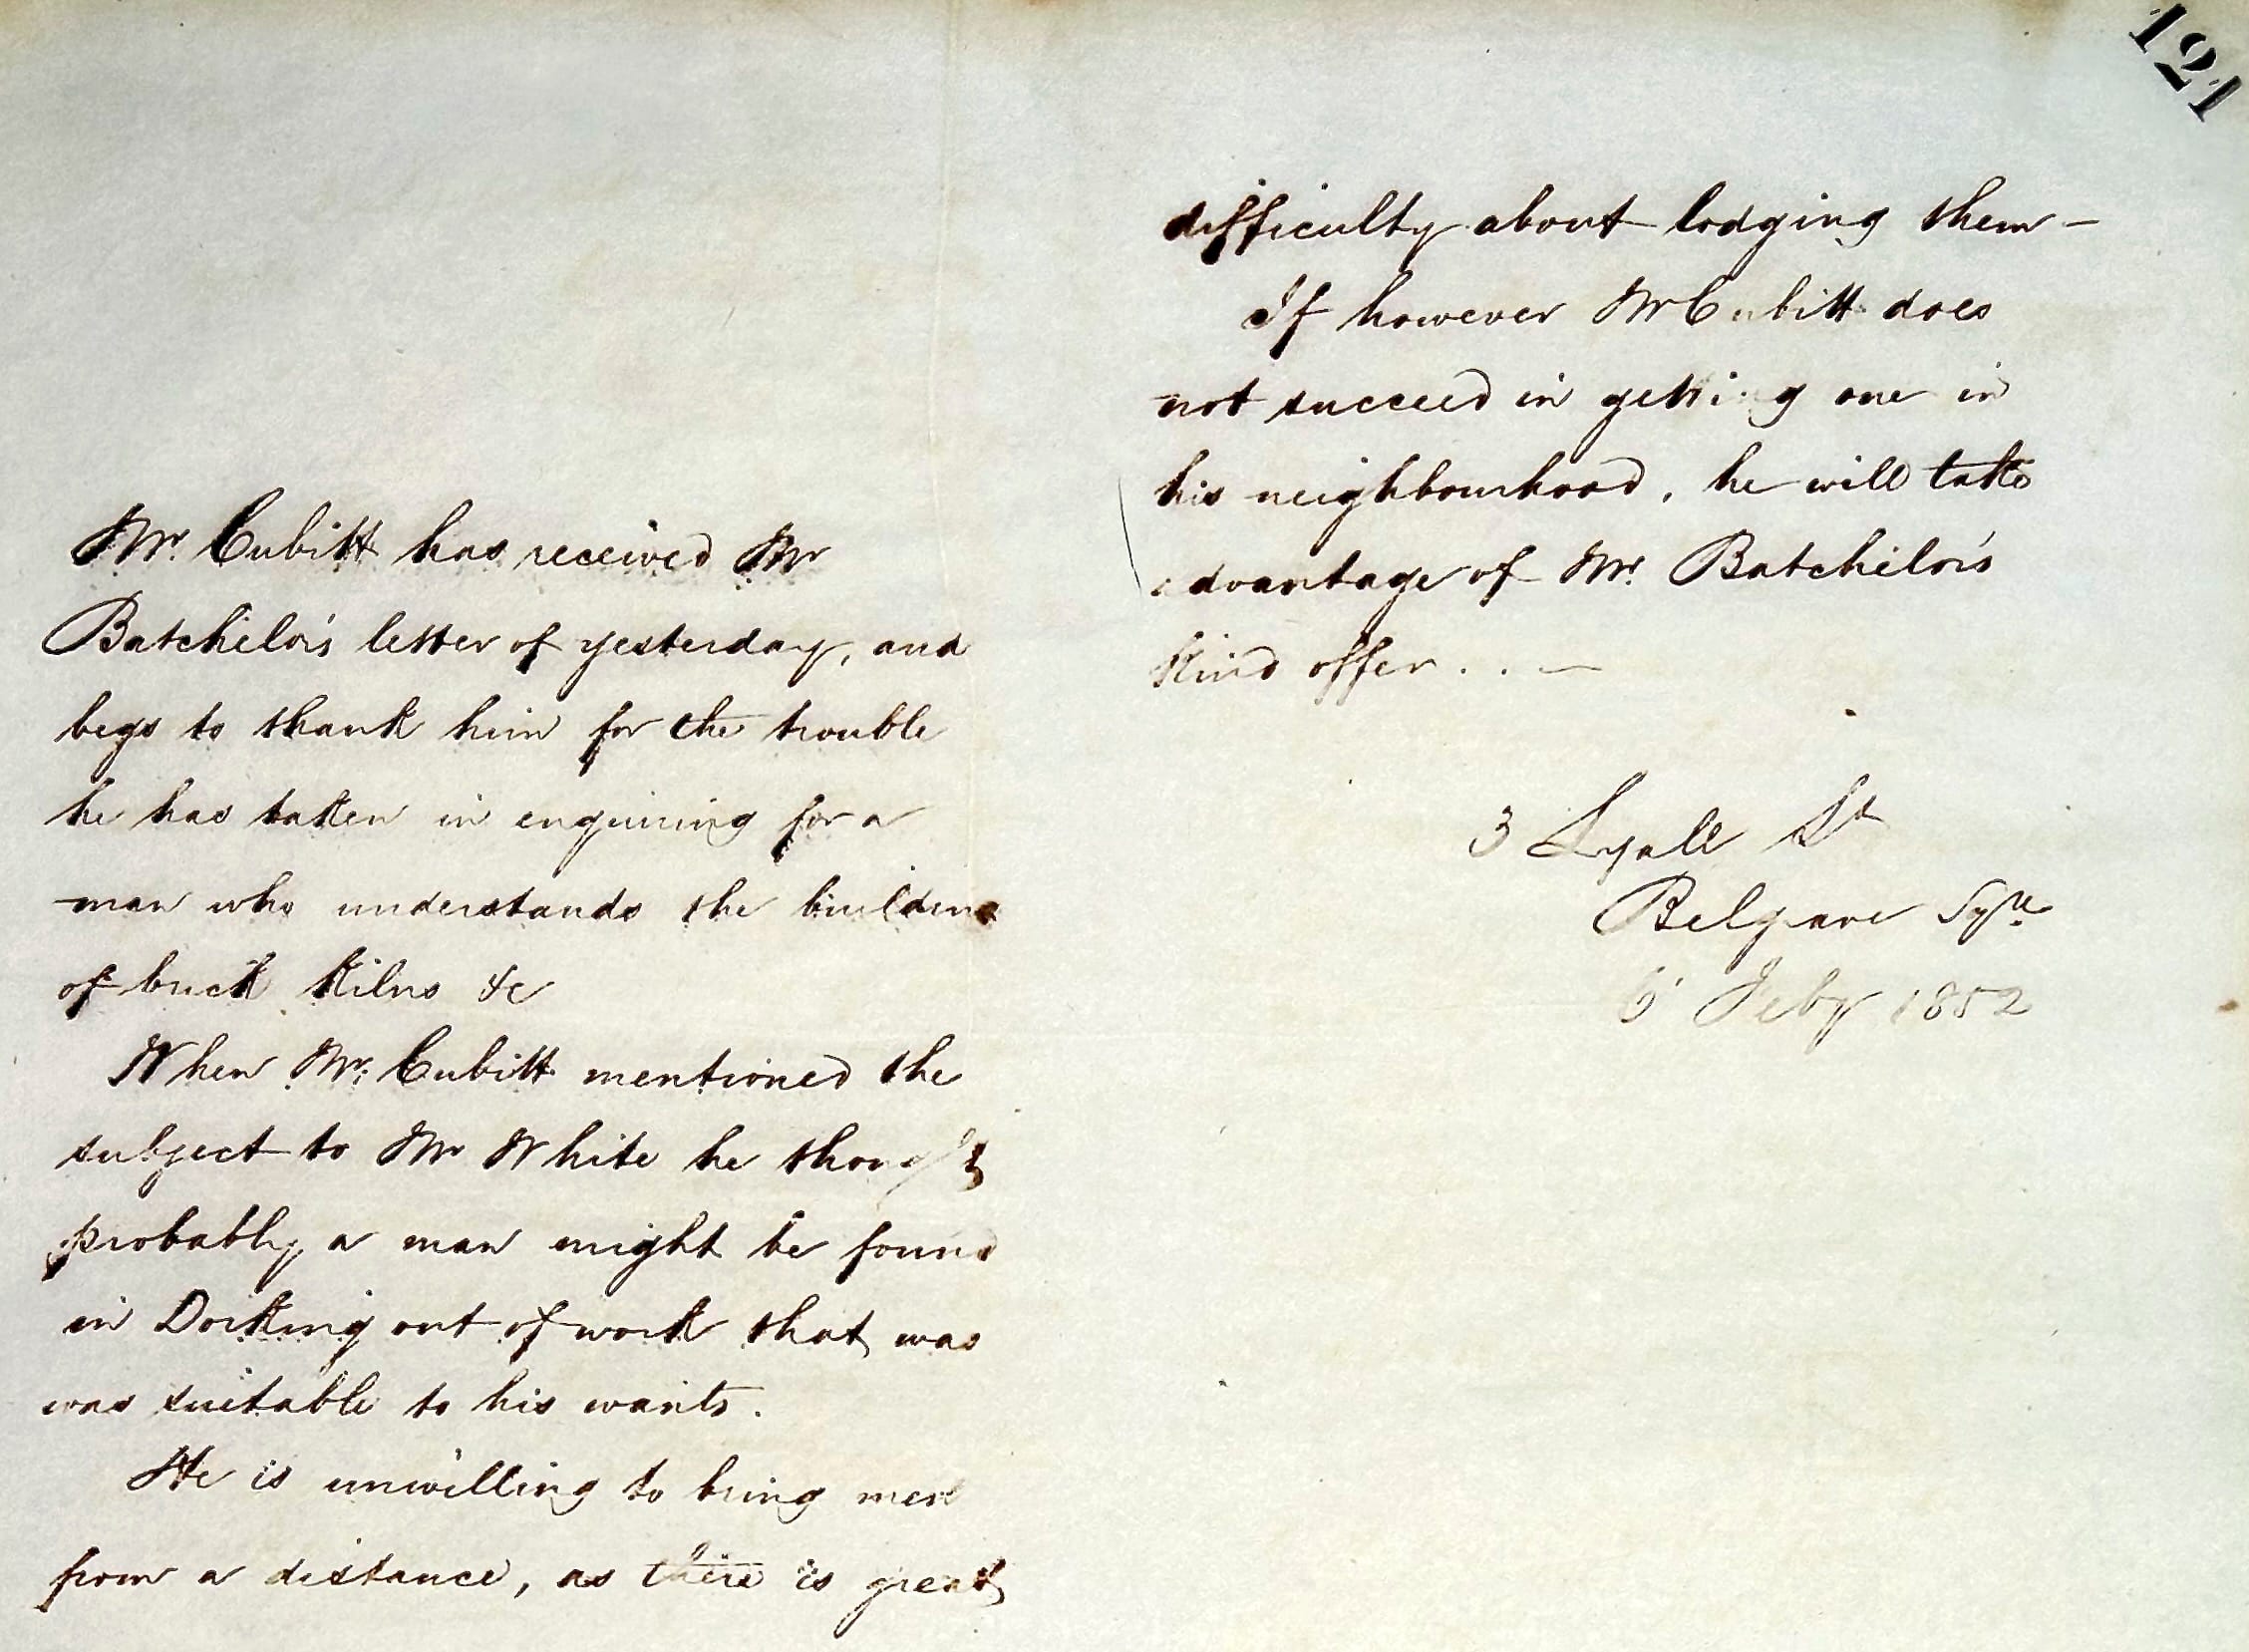 121
Mr. Cubitt has received Mr
Batchelor's letter of yesterday, and
begs to thank him for the trouble
he has taken in enquiring for a
man who understands the building
of brick kilns &c
When Mr. Cubitt mentioned the
subject to Mr White he thought
probably a man might be found
in Dorking out of work that was
was suitable to his wants.
He is unwilling to bring men
from a distance, as there is great
difficulty about lodging them —
If however Mr Cubitt does
not succeed in getting one in
his neighbourhood, he will take
advantage of Mr. Batchelor's
kind offer . . —
3 Lyall St
Belgrave Sqre
6 Feby 1852